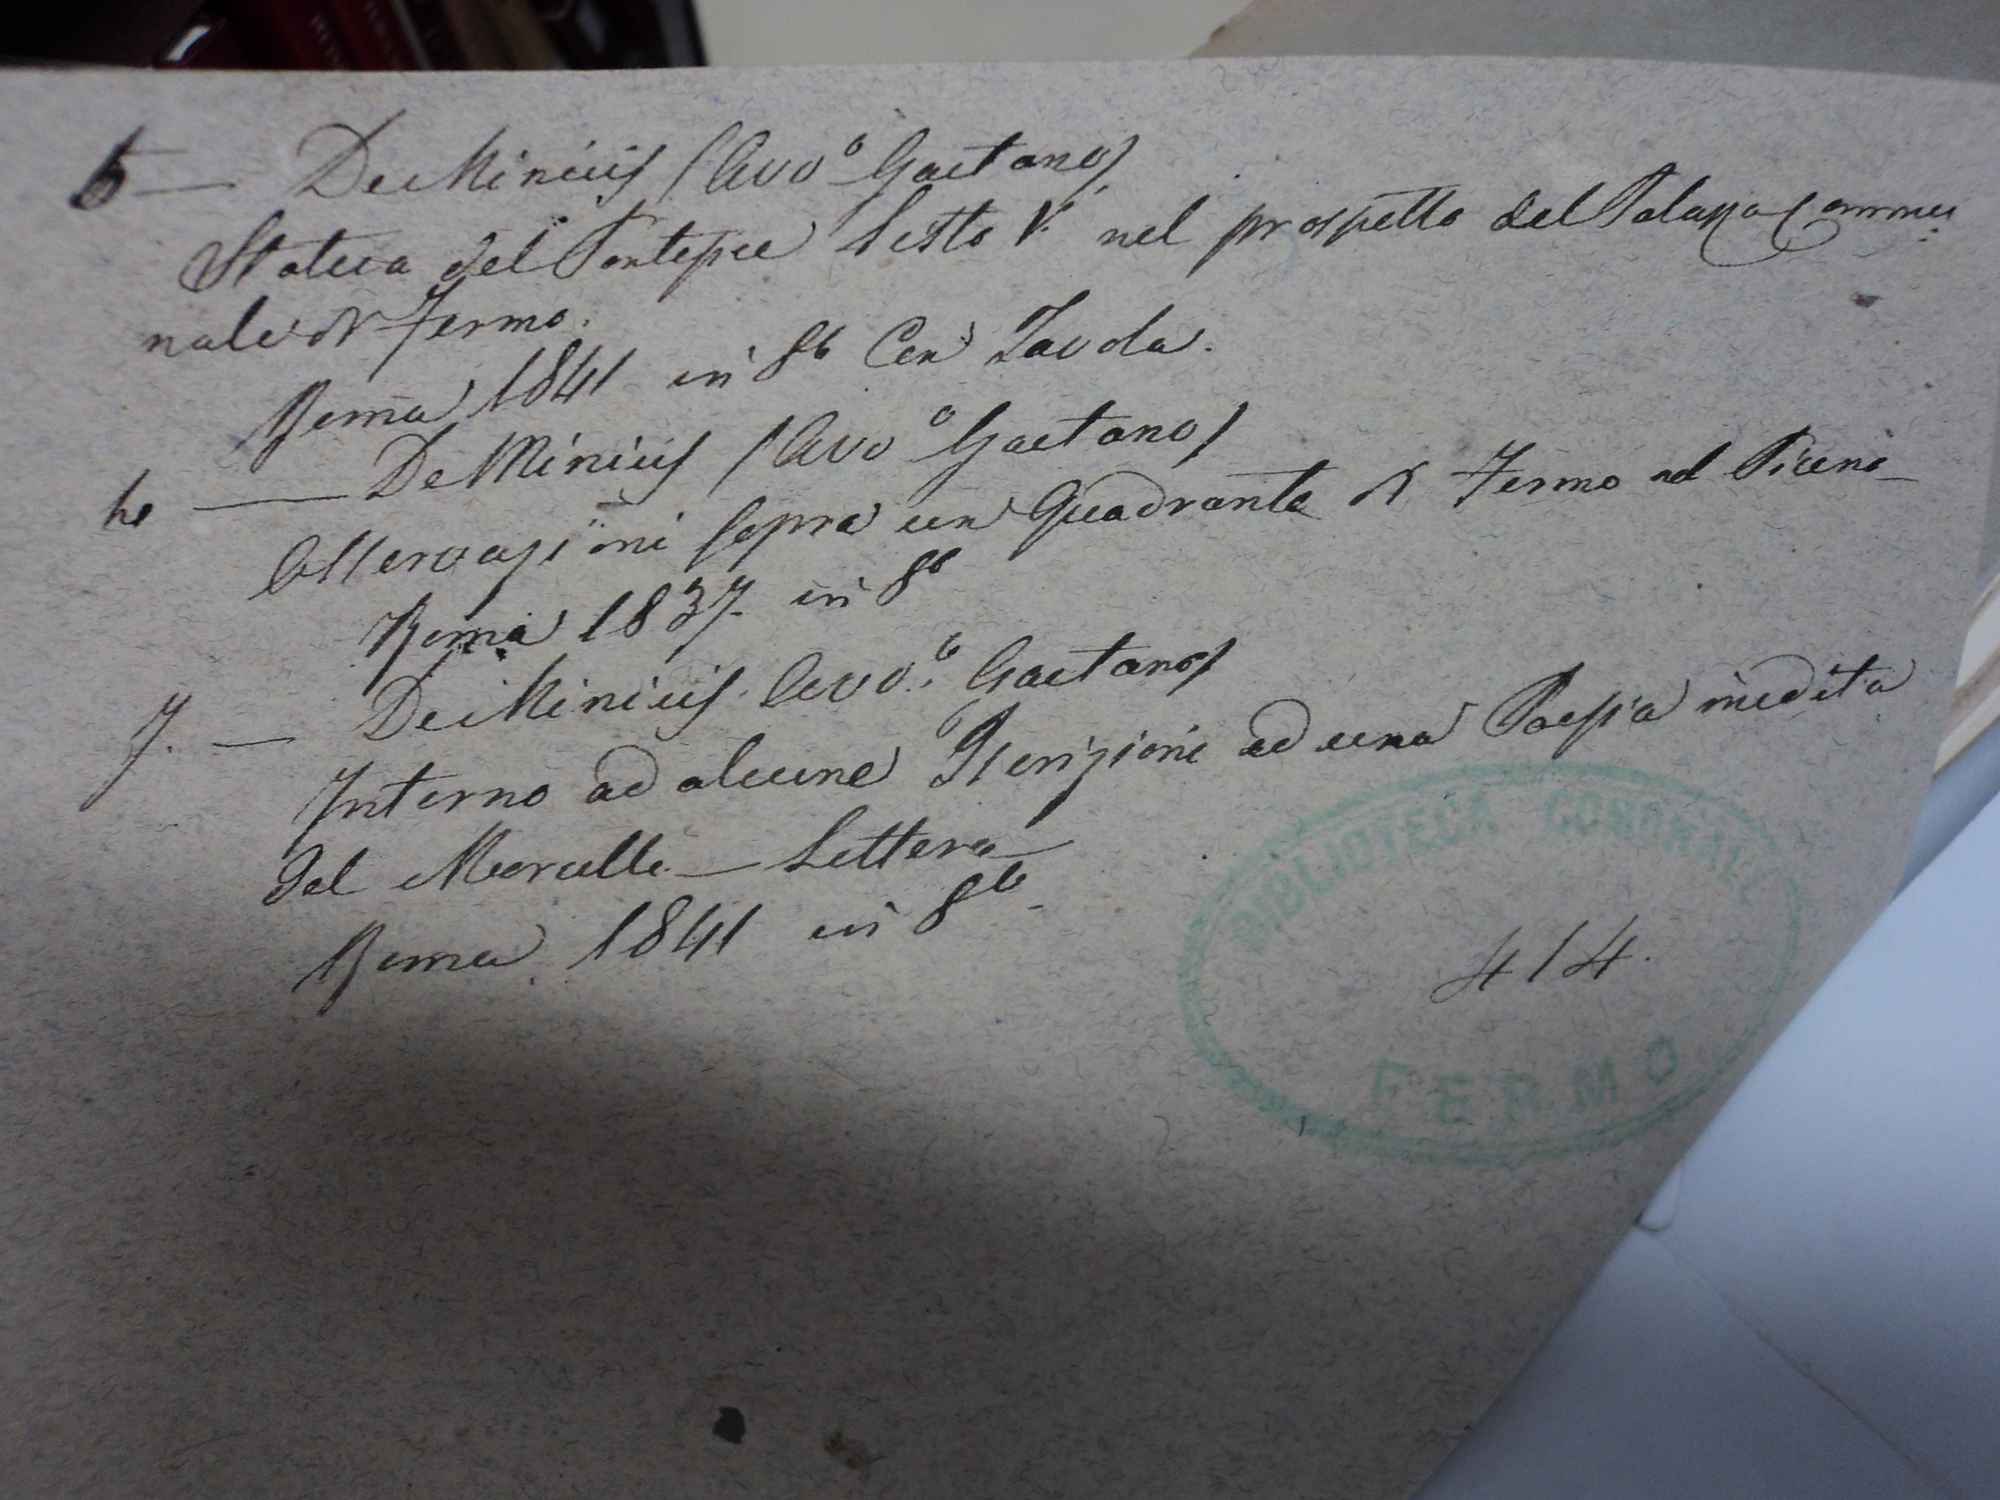 5 — De Minicis (Avvo Gaetano)
Statua del Pontefice Sisto V. nel prospetto del Palazzo Commu-
nale di Fermo.
Roma 1841 in 8o Con Tavola.
6 — De Minicis (Avvo Gaetano)
Osservazioni sopra un Quadrante di Fermo nel Piceno
Roma 1837. in 8o
7. — De Minicis Avvo. Gaetano)
Intorno ad alcune Iscrizioni ad una Poesia inedita
del Morcelli — Lettera
Roma 1841 in 8o
BIBLIOTECA COMUNALE
414.
FERMO